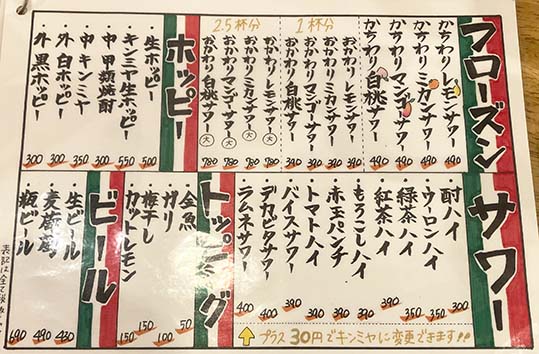 フローズンサワー
かちわりレモンサワー 490
かちわりミカンサワー 490
かちわりマンゴーサワー 490
かちわり白桃サワー 490
1杯分
おかわりレモンサワー 390
おかわりミカンサワー 390
おかわりマンゴーサワー 390
おかわり白桃サワー 390
2.5杯分
おかわりレモンサワー 大 780
おかわりミカンサワー 大 780
おかわりマンゴーサワー 大 780
おかわり白桃サワー 大 780
ホッピー
生ホッピー 500
キンミヤ生ホッピー 550
中 甲類焼酎 300
中 キンミヤ 350
外 白ホッピー 300
外 黒ホッピー 300
酎ハイ 300
ウーロンハイ 350
緑茶ハイ 350
紅茶ハイ
もろこしハイ 390
赤玉パンチ 390
トマトハイ 390
バイスサワー 390
デカビタサワー 400
ラムネサワー 400
プラス30円でキンミヤに変更できます!!
トッピング
金魚 50
ガリ 100
梅干し 150
カットレモン 150
ビール
生ビール 430
490
瓶ビール 690